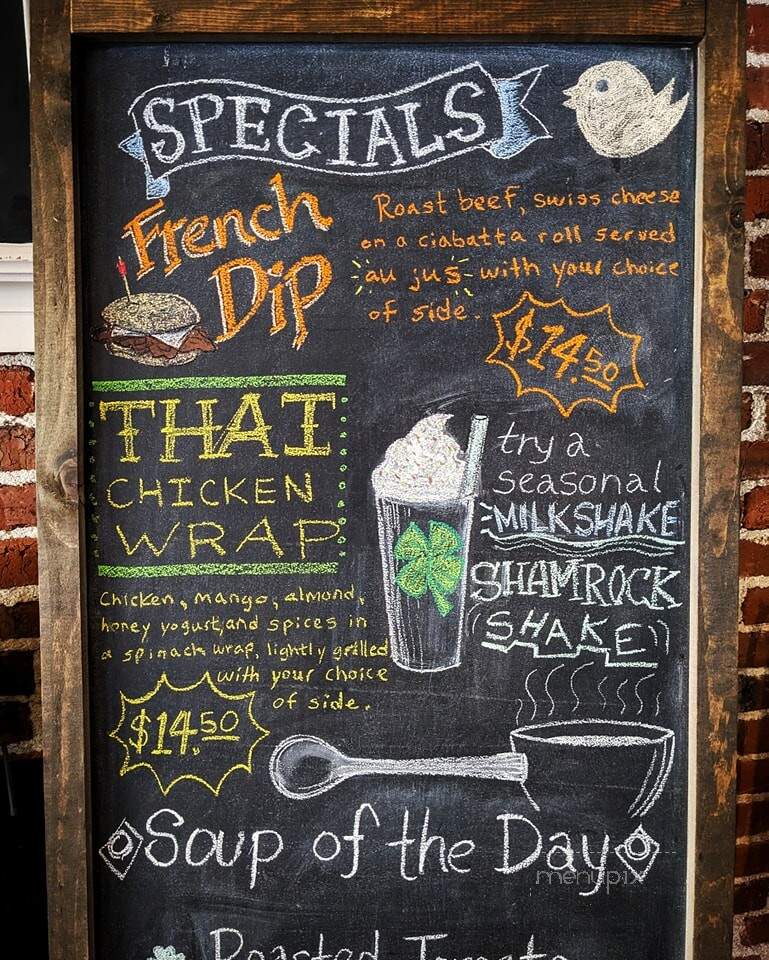 SPECIALS
French
Dip
Roast beef, swiss cheese
on a ciabatta roll served
au jus with your choice
of side.
$14.50
THAI
CHICKEN
WRAP
Chicken, mango, almond,
honey yogurt, and spices in
a spinach wrap, lightly grilled
with your choice
of side.
$14.50
try a
seasonal
MILKSHAKE
SHAMROCK
SHAKE
Soup of the Day
menupix
Roasted Tomato